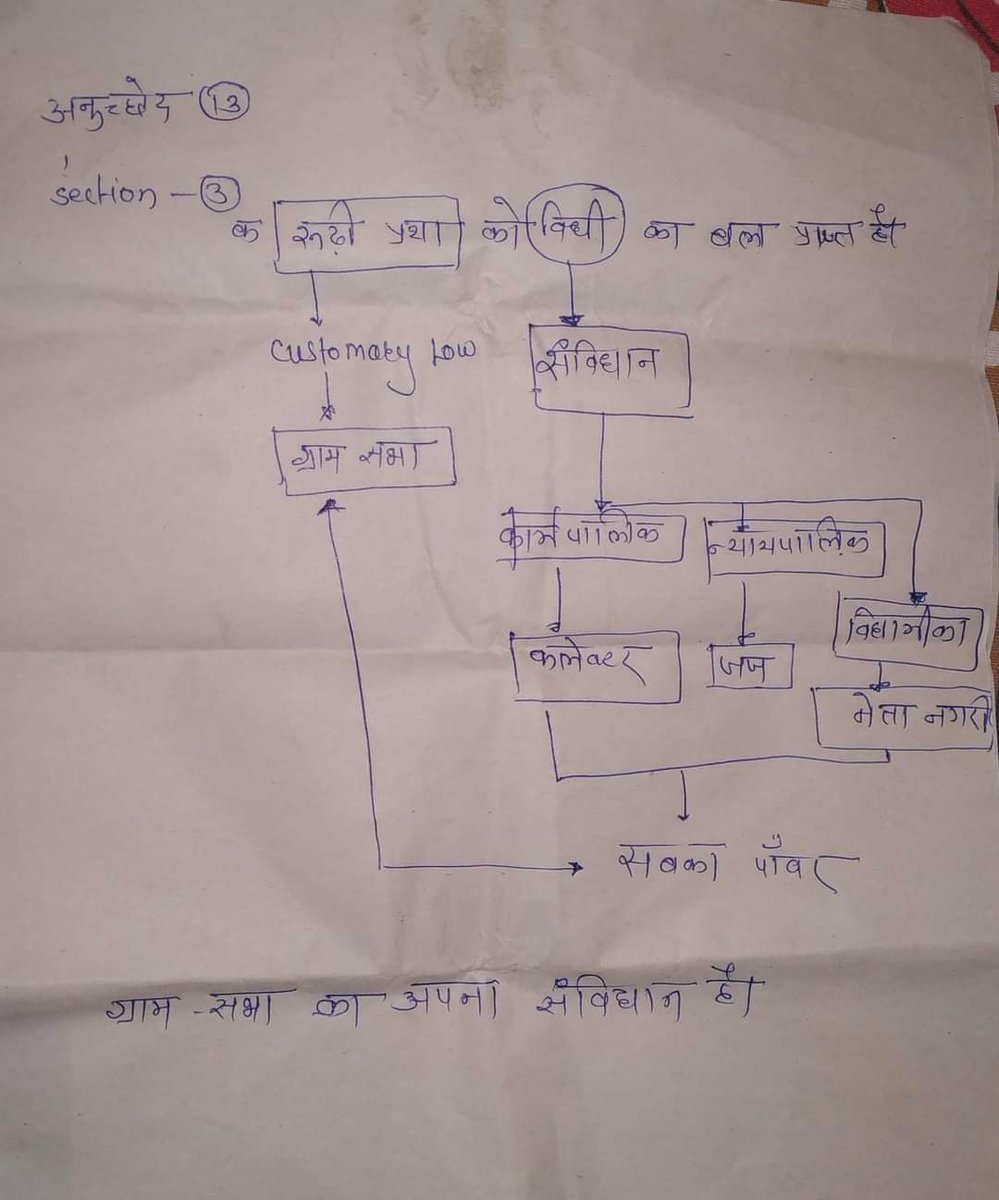 अनुच्छेद 13
section - 3
क रूढ़ी प्रथा को विधी का बल प्राप्त है।
customary Low
संविधान
ग्राम सभा
कार्यपालिक
न्यायपालिक
विधायीका
कलेक्टर
जज
नेता नगरी
सबका पाँवर
ग्राम-सभा का अपना संविधान है।